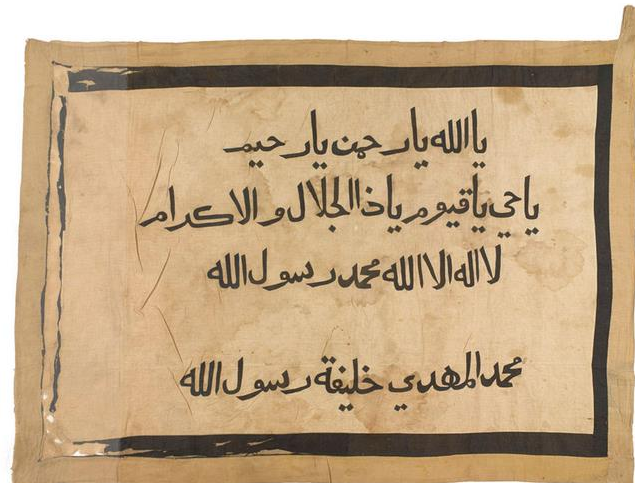 يا الله يا رحمن يا رحيم
يا حي يا قيوم يا ذا الجلال والاكرام
لا اله الا الله محمد رسول الله
محمد المهدي خليفة رسول الله